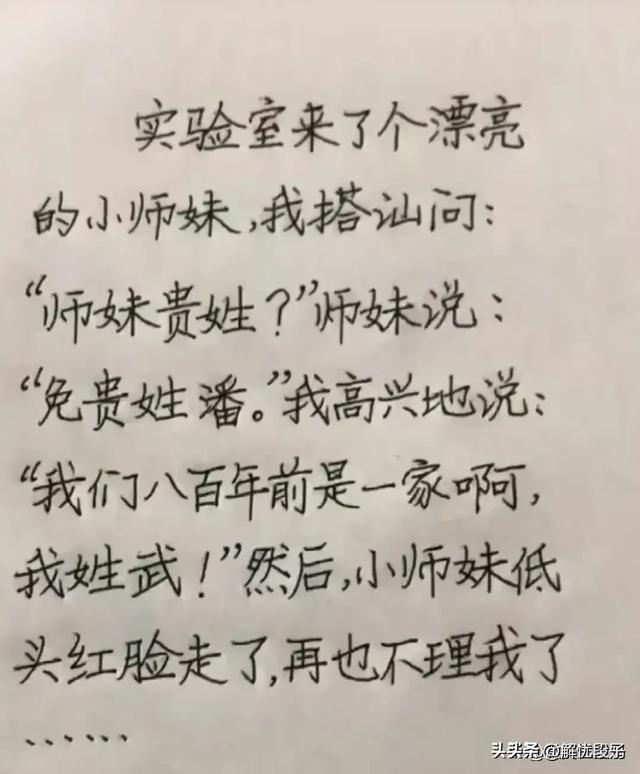 实验室来了个漂亮
的小师妹,我搭讪问:
“师妹贵姓?”师妹说:
“免贵姓潘。”我高兴地说:
“我们八百年前是一家啊,
我姓武!”然后,小师妹低
头红脸走了,再也不理我了
……
头条 @解忧段子